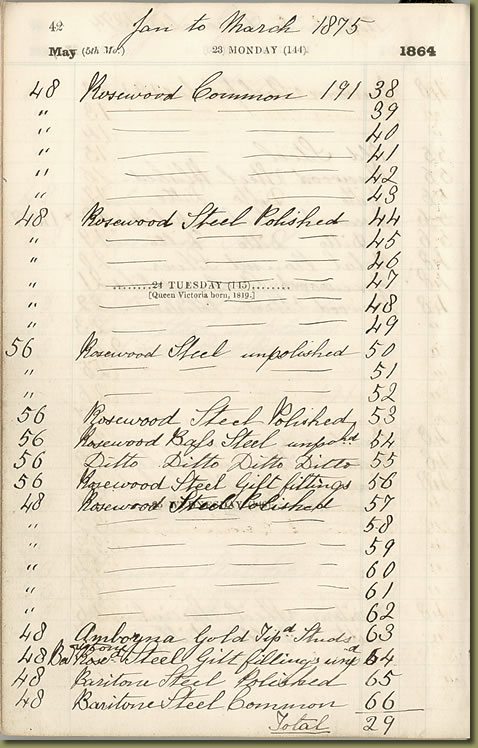 42 Jan to March 1875
May (5th Mo.) 23 MONDAY (144). 1864
48 Rosewood Common 191 38
" — — 39
" — — 40
" — — 41
" — — 42
" — — 43
48 Rosewood Steel Polished 44
" — — 45
" — — 46
" — — 47
24 TUESDAY (145)
[Queen Victoria born, 1819.]
" — — 48
" — — 49
56 Rosewood Steel unpolished 50
" — — 51
" — — 52
56 Rosewood Steel Polished 53
56 Rosewood Bass Steel unpod 54
56 Ditto Ditto Ditto Ditto 55
56 Rosewood Steel Gilt fittings 56
48 Rosewood Steel Polished 57
" — — 58
" — — 59
" — — 60
" — — 61
" — — 62
48 Amboyna Gold Tipd Studs 63
48 Rose Steel Gilt fillings 64
48 Baritone Steel Polished 65
48 Baritone Steel Common 66
Total 29